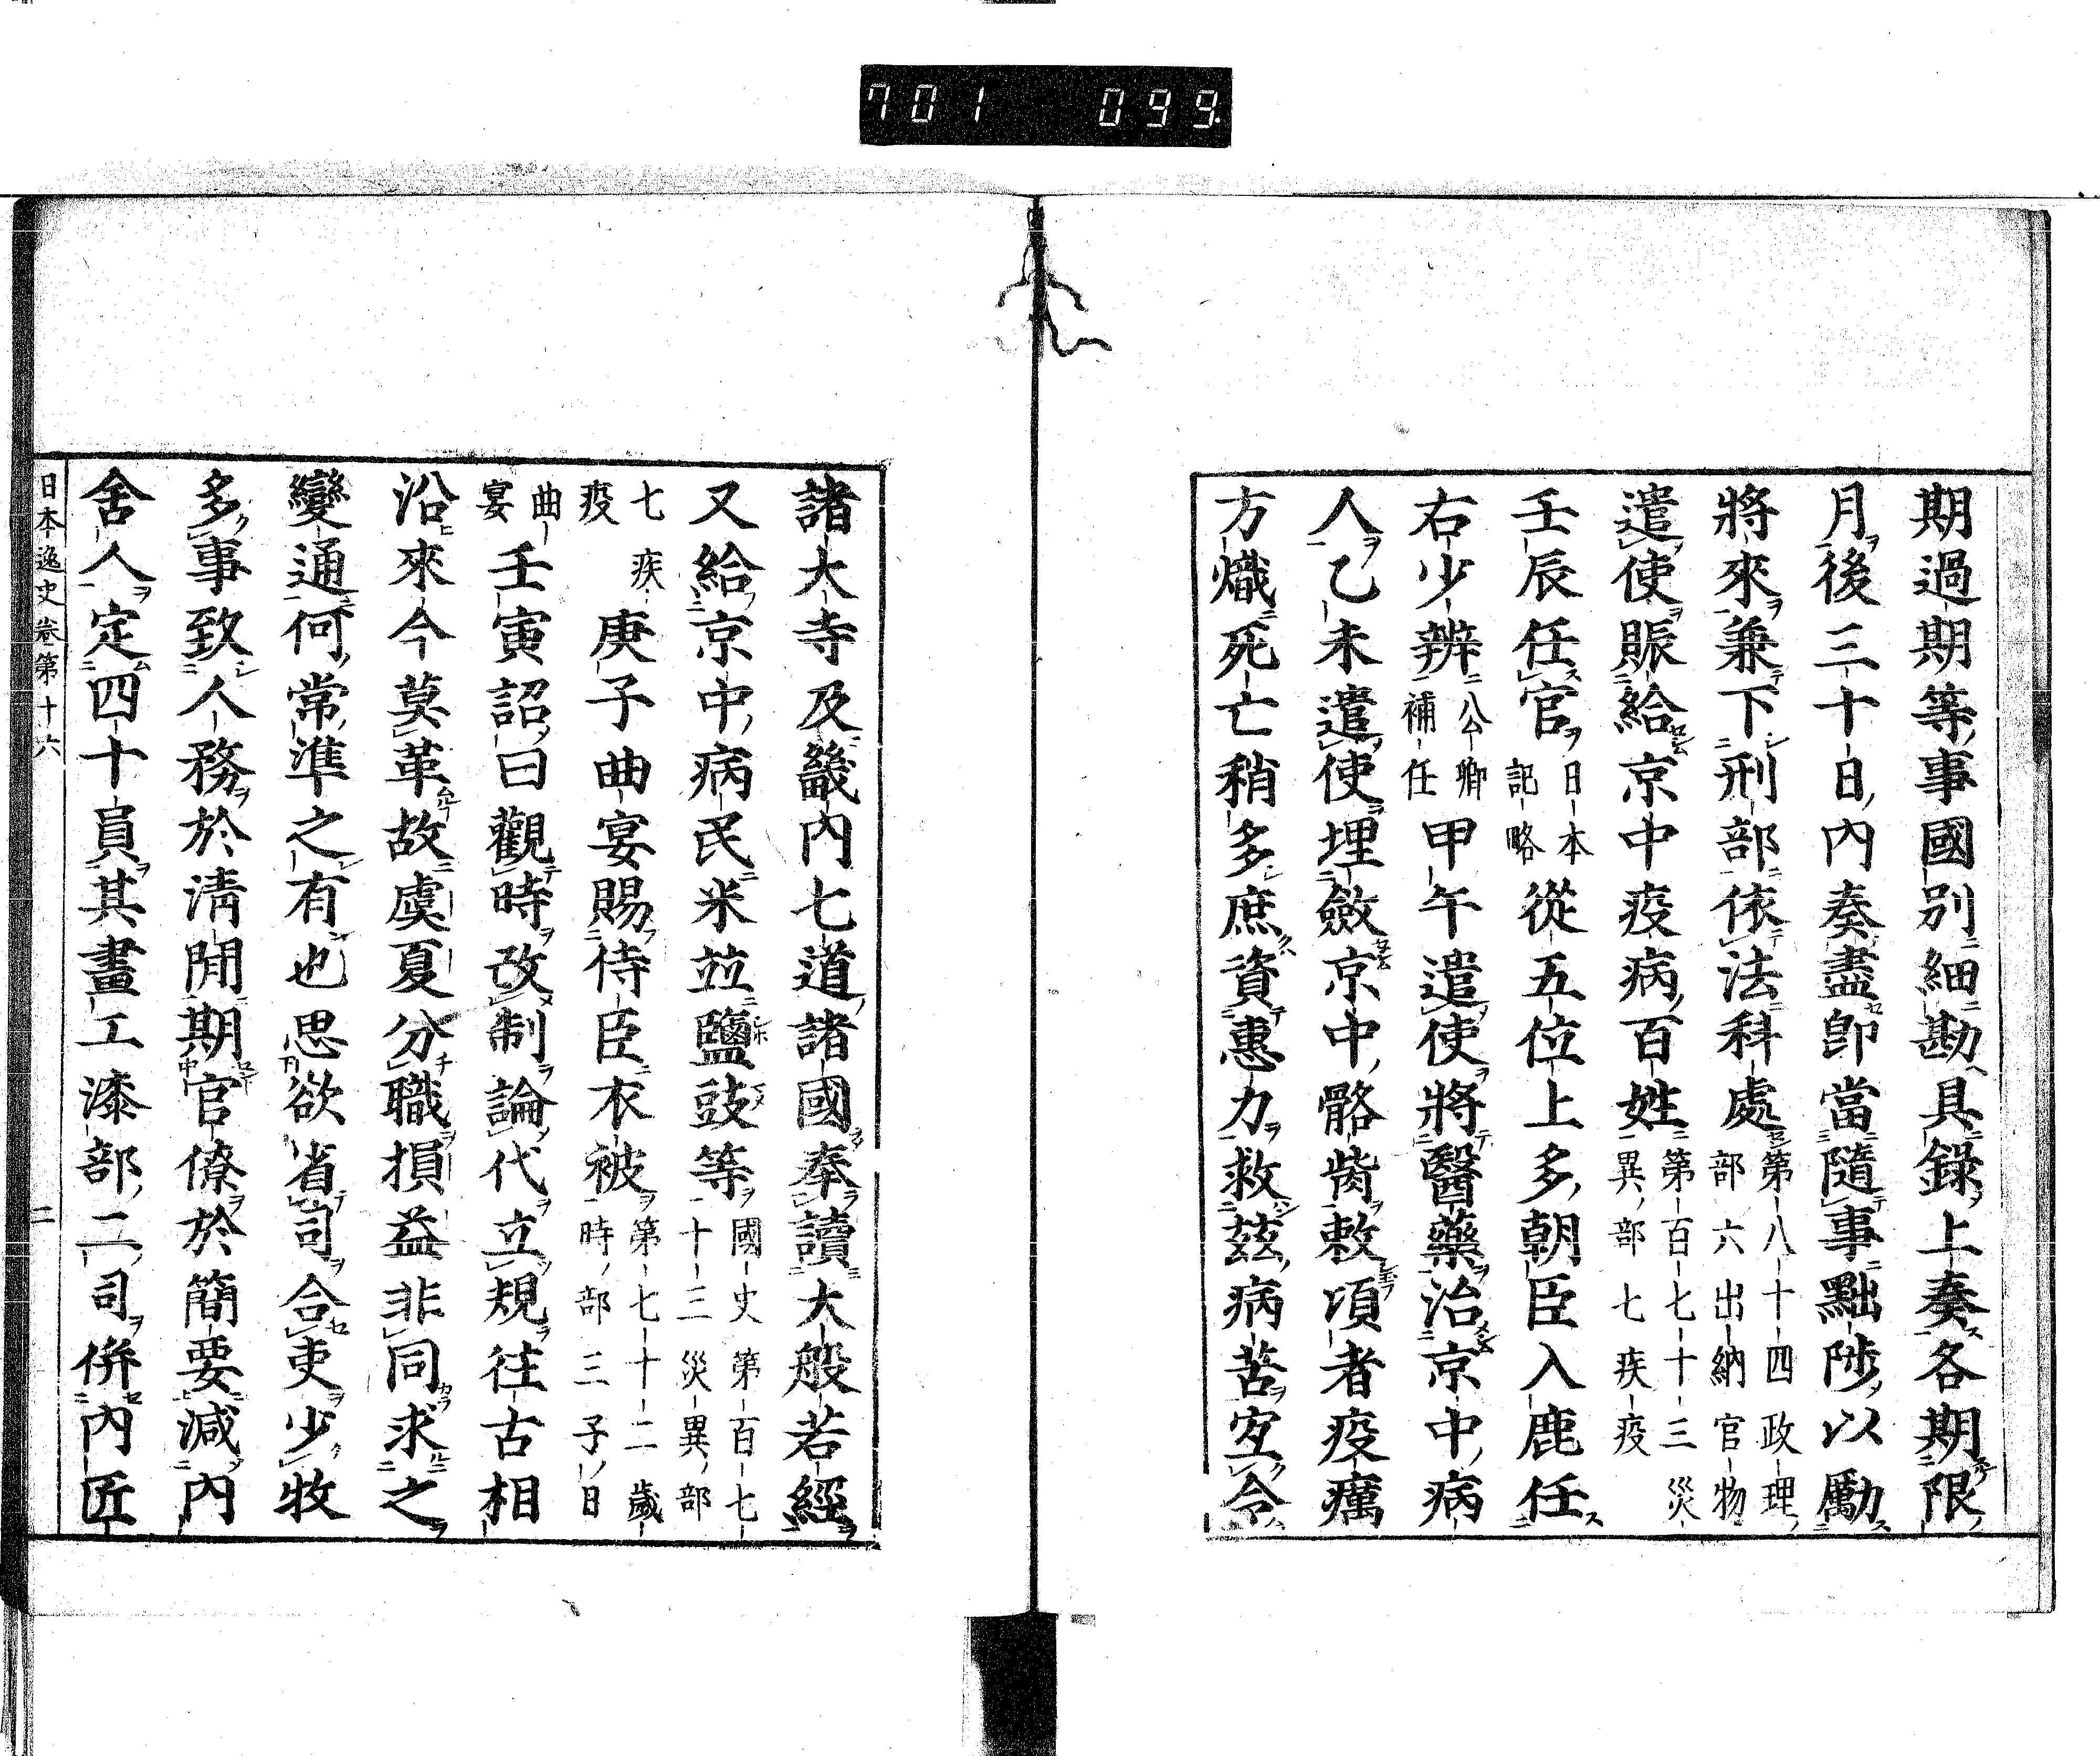 701 099
期過期等事國別細勘具錄上奏各期限
月後三十日內奏盡卽當隨事黜陟以勵
將來兼下刑部依法科處第八十四政理
部六出納官物
遣使賑給京中疫病百姓第百七十三災
異部七疾疫
壬辰任官日本
記略從五位上多朝臣入鹿任
右少辨公卿
補任甲午遣使將醫藥治京中病
人乙未遣使埋斂京中骼胔敕頃者疫癘
方熾死亡稍多庶資惠力救茲病苦宜令
諸大寺及畿內七道諸國奉讀大般若經
又給京中病民米並鹽豉等國史第百七
十三災異部
七疾
疫庚子曲宴賜侍臣衣被第七十二歲
時部三子日
曲
宴壬寅詔曰觀時改制論代立規往古相
沿來今莫革故虞夏分職損益非同求之
變通何常準之有也思欲省司合吏少牧
多事致人務於淸閒期官僚於簡要減內
舍人定四十員其畫工漆部二司併內匠
日本逸史卷第十六
二